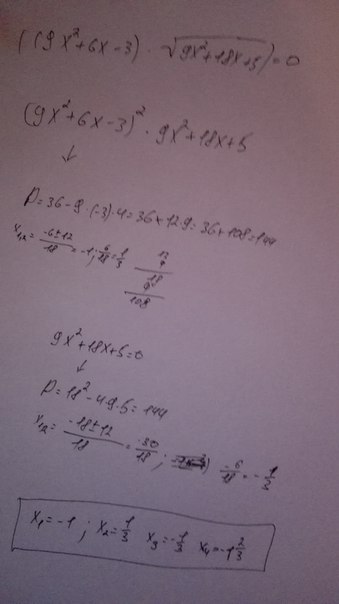 ((9x²+6x-3) · √9x²+18x+5)=0
(9x²+6x-3)² · 9x²+18x+5
↓
D=36-9·(-3)·4=36+12·9=36+108=144
x₁,₂= -6±12/18 = -1; 6/18 = 1/3
12
9
18
9
108
9x²+18x+5=0
↓
D=18²-4·9·5=144
x₁,₂= -18±12/18 = -30/18; -6/18 = -1/3
x₁=-1; x₂=1/3 x₃=-1/3 x₄=-1 2/3